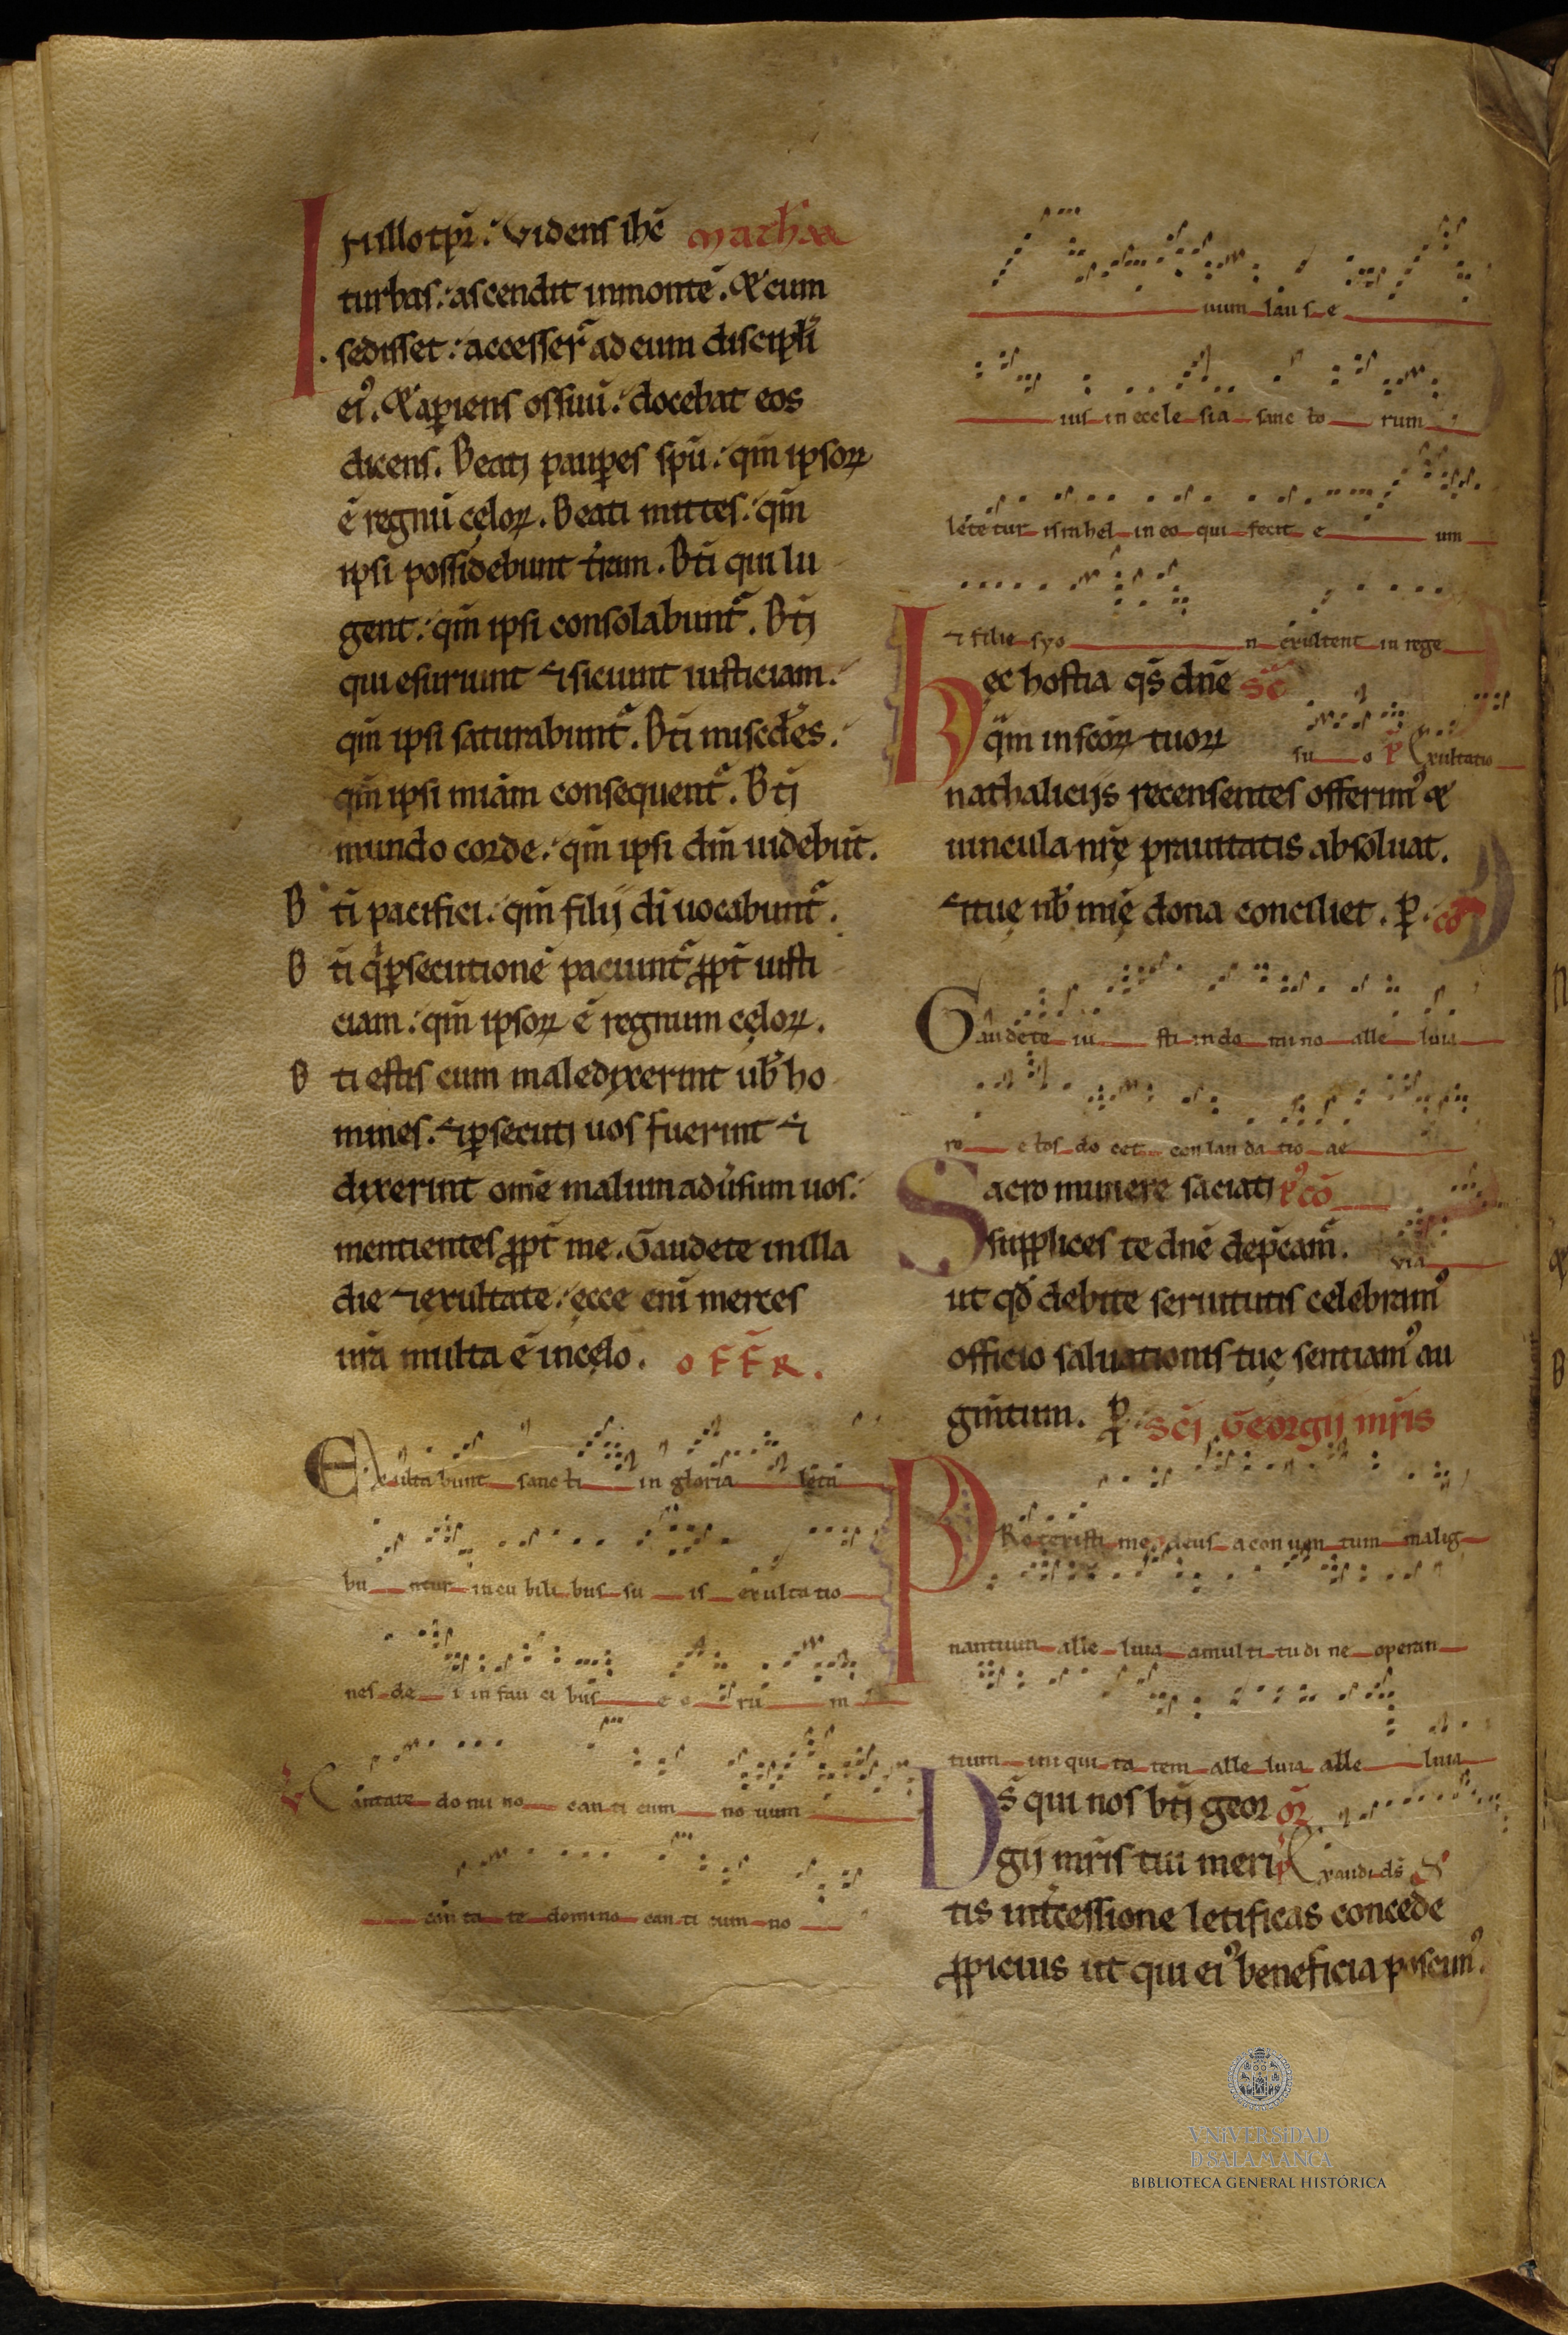 In illo tp̄r. Videns ih̄c Matheẽ
turbas: ascendit in montē. Et cum
sedisset: accesser̄ ad eum discipl̄i
eiꝰ. Et aꝑiens os suū: docebat eos
dicens. Beati pauꝑes spū: qm̄ ipsoꝝ
ē regnū cęloꝝ. Beati mittes: qm̄
ipsi possidebunt t̄ram. Bt̄i qui lu
gent: qm̄ ipsi consolabunt᷑. Bt̄j
qui esuriunt ⁊ siciunt iusticiam:
qm̄ ipsi saturabunt᷑. Bt̄i misc̄des:
qm̄ ipsi miam̄ consequent᷑. Bt̄j
mundo corde: qm̄ ipsi dm̄ uidebūt.
Bt̄i pacifici: qm̄ filij dī uocabunt᷑.
Bt̄i q̇ ꝑsecutionē paciunt᷑ ꝓpt̄ iusti
ciam: qm̄ ipsoꝝ ē regnum cęloꝝ.
Bt̄i estis cum maledixerint ub̄ ho
mines. ⁊ ꝑsecutj uos fuerint ⁊
dixerint om̄e malum adūsum uos:
mentientes ꝓpt̄ me. Gaudete in illa
die ⁊ exultate: ecce enī merces
ur̄a multa ē in cęlo. OFFR.
Exulta bunt sanc ti in gloria letā
bu ntur in cu bili bus su is exultatio
nes de i in fau ci bus e o rū m
V Cantate domi no can ti cum no uum
can ta te domino can ti cum no
uum lau s e
ius in eccle sia sanc to rum
lete tur israhel in eo qui fecit e um
⁊ filie syo n exultent in rege
Hęc hostia qs̄ dn̄e SC̄
q̈m in sc̄oꝝ tuoꝝ su o P̄ Exultatio
nathalicijs recensentes offerimꝰ et
uincula nr̄ę prauitatis absoluat.
⁊ tuę nb̄ mīę dona conciliet. ꝑ. cō
Gaudete iu sti in do mi no alle luia
re c tos de cet con lau da tio ae
Sacro munere saciati Pꝰcō
supplices te dn̄e dep̄cam᷑. via
ut qd̄ debite seruitutis celebramꝰ
officio saluationis tuę sentiamꝰ au
gm̄tum. ꝑ. Sc̄j Georgij mr̄is
PRotexisti me deus a con uen tum malig
nantium alle luia a multi tu di ne operan
tium in i qui ta tem alle luia alle luia
Ds̄ qui nos bt̄j geor OR̄
gij mr̄is tui meri P̄ Exaudi ds̄
tis int̄cessione letificas concede
ꝓpicius ut qui eiꝰ beneficia poscimꝰ.
VNIVERSIDAD
D SALAMANCA
BIBLIOTECA GENERAL HISTÓRICA